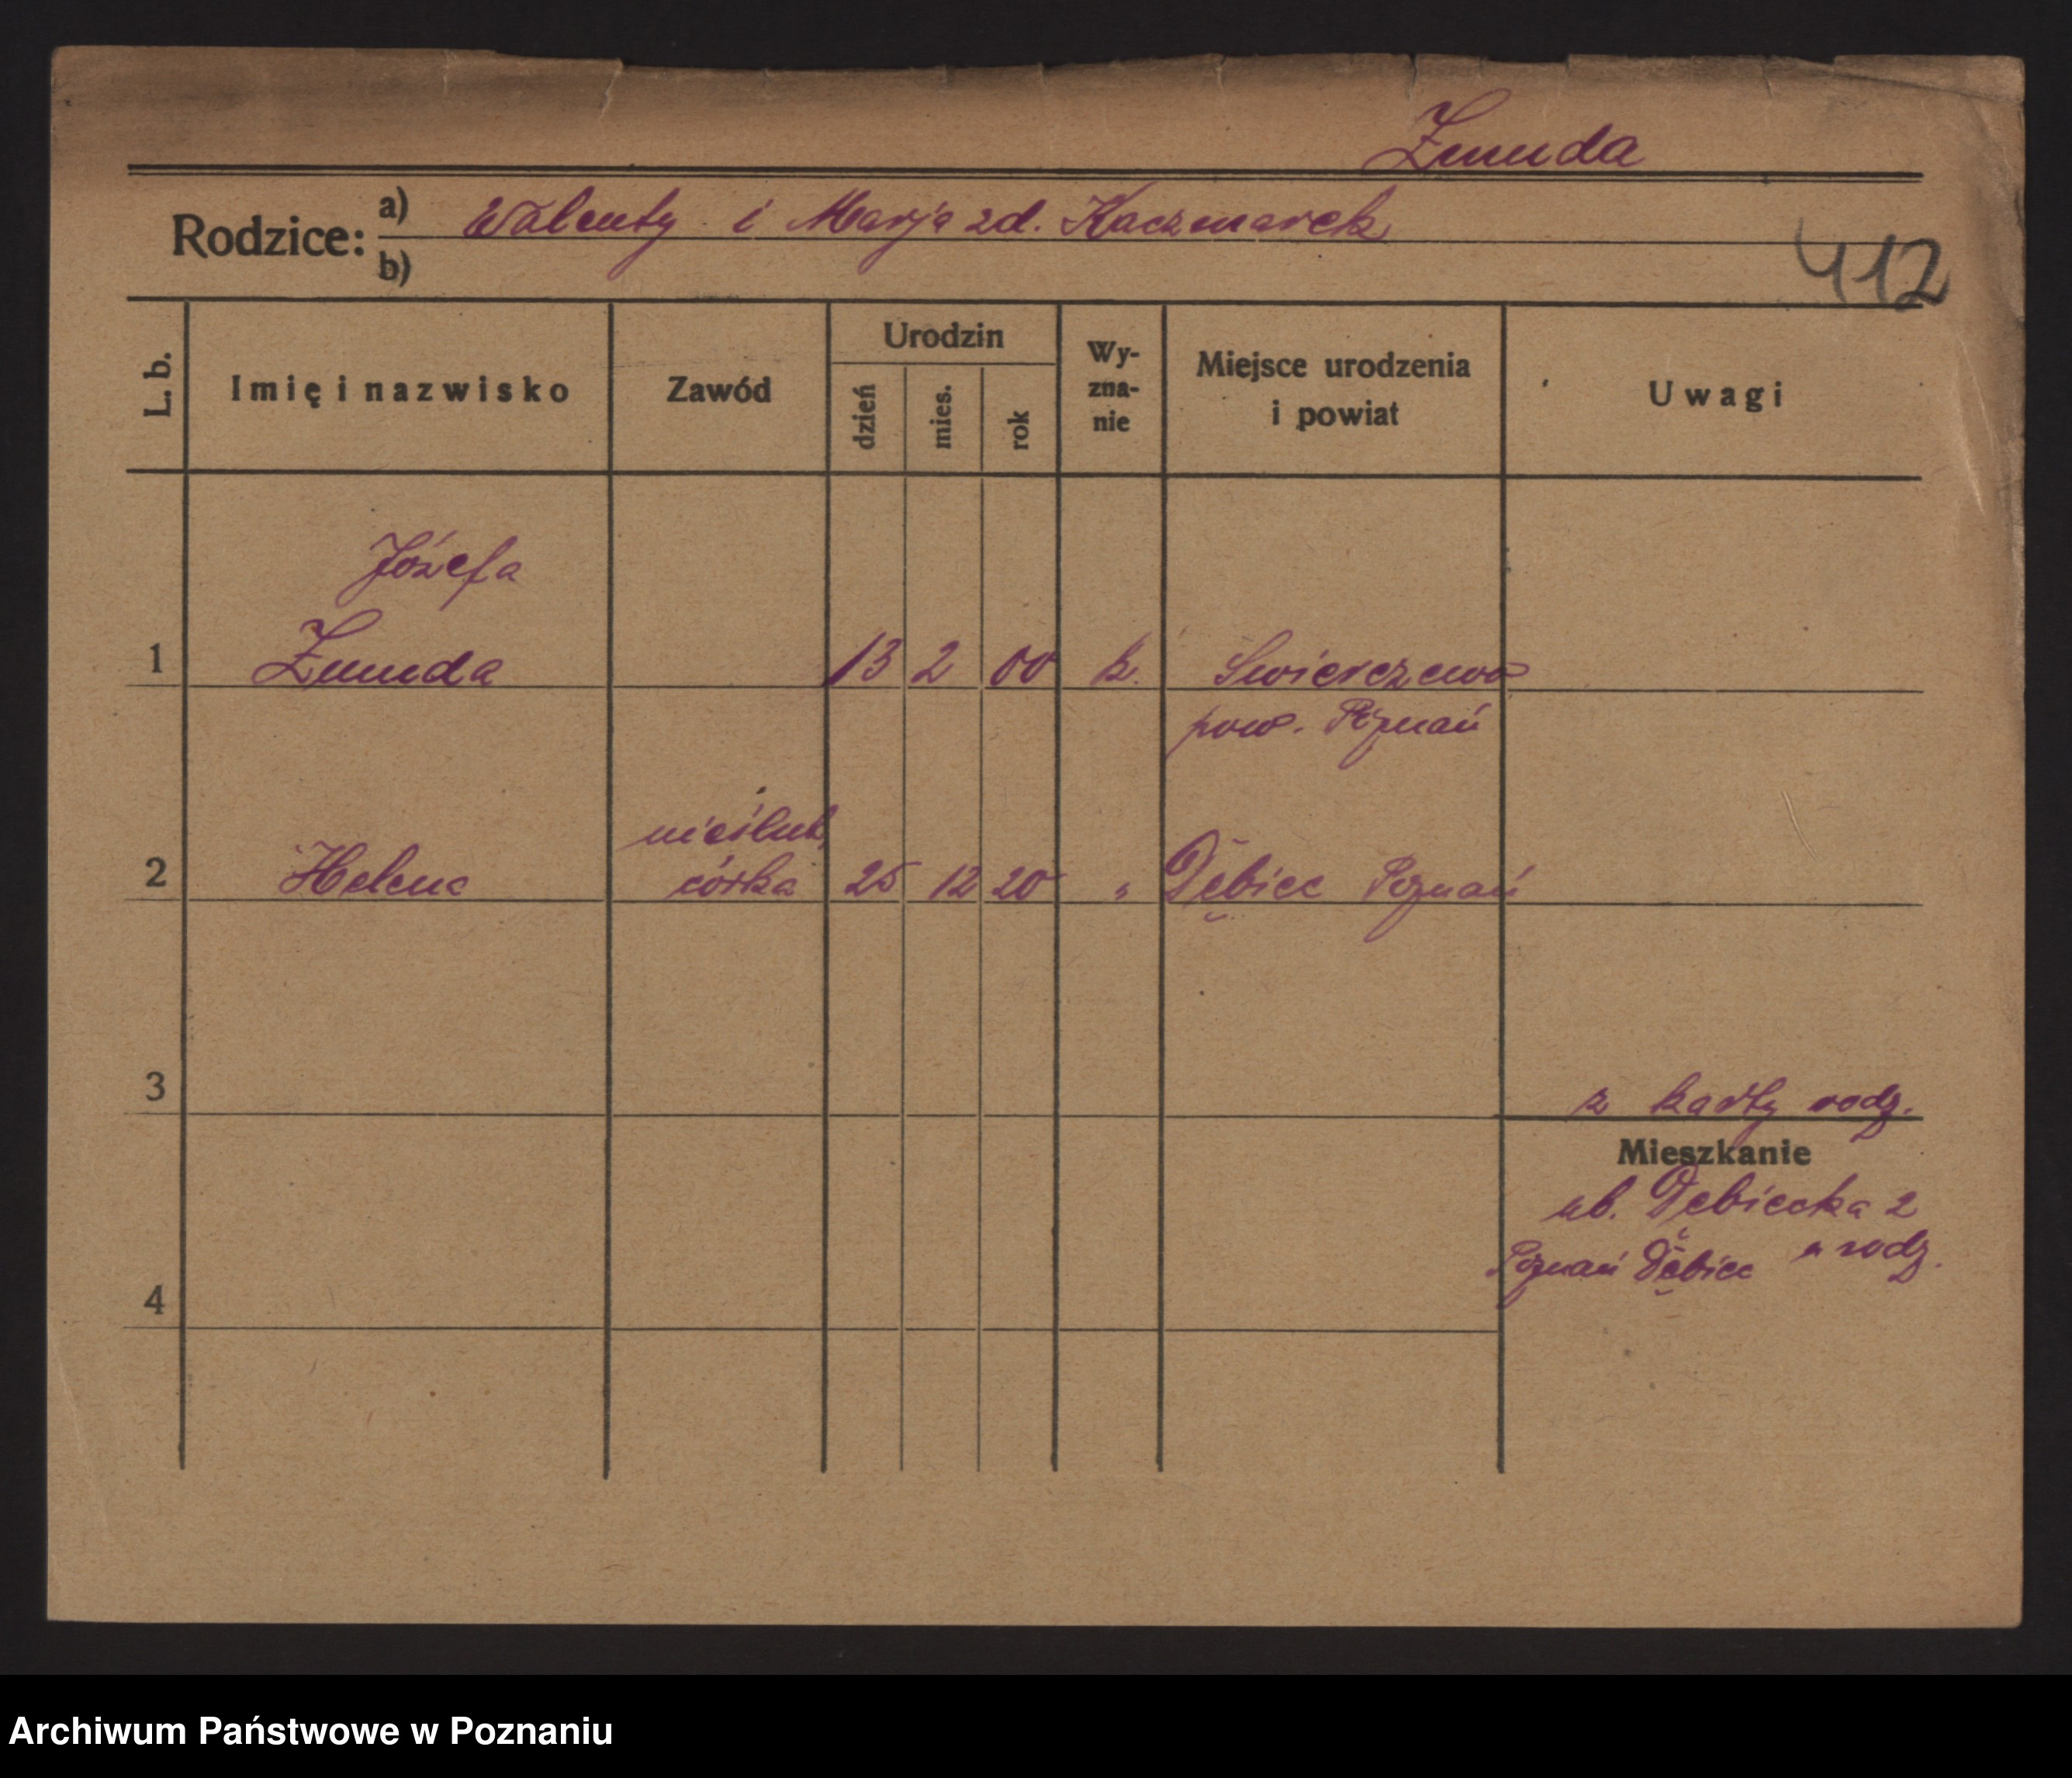 Żmuda
Rodzice: a) Walenty i Marja zd. Kaczmarek
b)
412
L. b.
Imię i nazwisko
Zawód
Urodzin
dzień
mies.
rok
Wy-
zna-
nie
Miejsce urodzenia
i powiat
Uwagi
Józefa
1 Żmuda 13 2 00 k. Swierczewo
pow. Poznań
nieślub.
2 Helena córka 25 12 20 " Dębiec Poznań
3 z karty rodz.
Mieszkanie
ul. Dębiecka 2
Poznań Dębiec rodz.
4
Archiwum Państwowe w Poznaniu